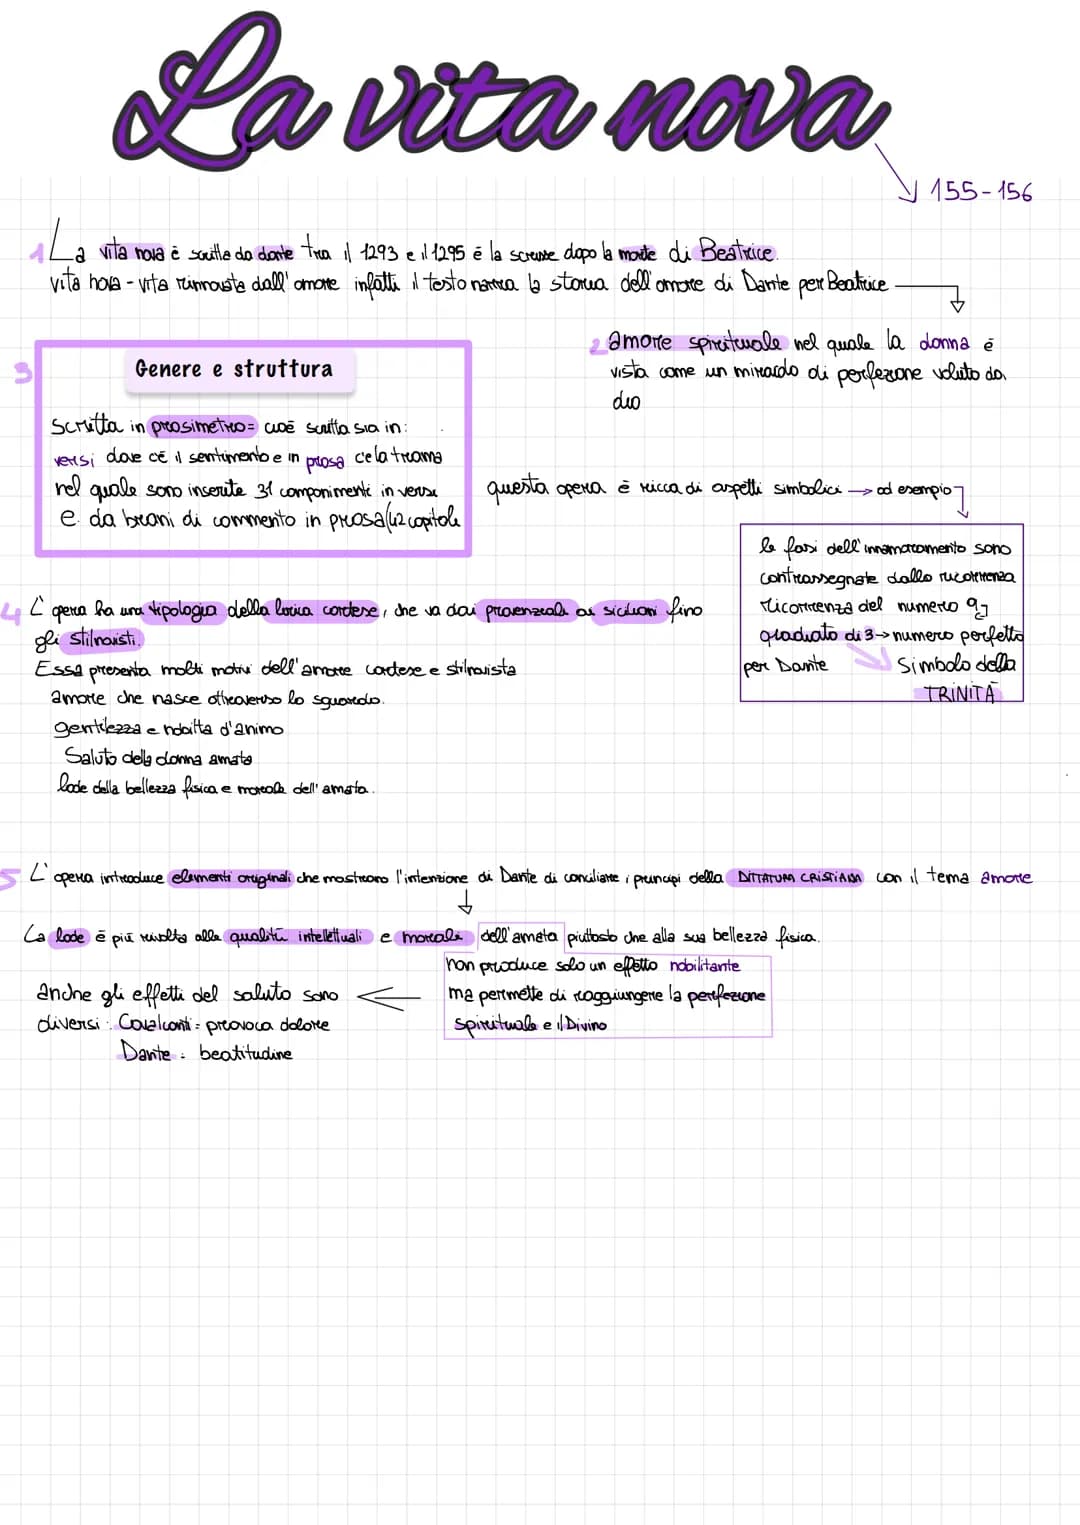 La vita nova
155-156
1 La vita nova è scritta da dante tra il 1293 e il 1295 e la scrisse dopo la morte di Beatrice.
vita nova - vita rinnovata dall'amore infatti il testo narra la storia dell'amore di Dante per Beatrice
2 amore spirituale nel quale la donna è
vista come un miracolo di perfezione voluto da
dio
3
Genere e struttura
Scritta in prosimetro= cioè scritta sia in:
versi dove c'è il sentimento e in prosa c'è la trama
nel quale sono inserite 31 componimenti in versi
e da brani di commento in prosa (42 capitoli
questa opera è ricca di aspetti simbolici → ad esempio
le fasi dell'innamoramento sono
contrassegnate dalla ricorrenza
ricorrenza del numero 9
quadrato di 3 → numero perfetto
per Dante
Simbolo della
TRINITÀ
4 L'opera ha una tipologia della lirica cortese, che va dai provenzali ai siciliani fino
gli stilnovisti.
Essa presenta molti motivi dell'amore cortese e stilnovista
amore che nasce attraverso lo sguardo.
gentilezza e nobilta d'animo
Saluto della donna amata
lode della bellezza fisica e morale dell'amata.
5 L'opera introduce elementi originali che mostrano l'intenzione di Dante di conciliare i principi della DITTATURA CRISTIANA con il tema amore
La lode è più rivolta alle qualità intellettuali e morali dell'amata piuttosto che alla sua bellezza fisica.
non produce solo un effetto nobilitante
ma permette di raggiungere la perfezione
spirituale e il Divino
anche gli effetti del saluto sono
diversi: Cavalcanti = provoca dolore
Dante = beatitudine